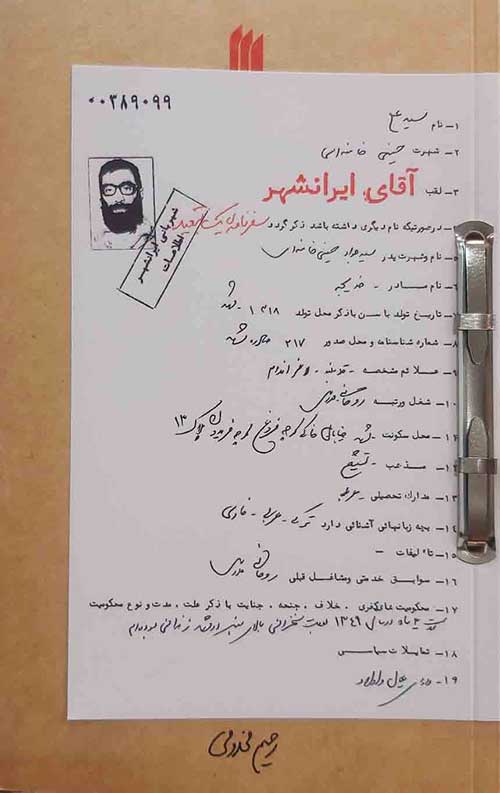 ۰۰۳۸۹۰۹۹
۱- نام سید علی
۲- شهرت حسینی خامنه‌ای
۳- لقب آقای ایرانشهر
۴- درصورتیکه نام دیگری داشته باشد ذکر گردد سفرنامه‌ی یک تبعید
شهربانی ایرانشهر
اطلاعات
۵- نام وشهرت پدر سید جواد حسینی خامنه‌ای
۶- نام مادر - خدیجه
۷- تاریخ تولد با سن باذکر محل تولد ۱۳۱۸ - مشهد
۸- شماره شناسنامه و محل صدور ۲۱۷ مشهد
۹- علائم مشخصه - قدبلند - لاغر اندام
۱۰- شغل ورتبه روحانی
۱۱- محل سکونت - مشهد خیابان خاکی کوچه فروغ کوچه فریدون پلاک ۱۳
۱۲- مذهب - تشیع
۱۳- مدارک تحصیلی -
۱۴- بچه زبانهائی آشنائی دارد ترکی - عربی - فارسی
۱۵- تاءلیفات -
۱۶- سوابق خدمتی ومشاغل قبلی روحانی
۱۷- محکومیت غیرکیفری ، خلاف ، جنحه ، جنایت با ذکر علت ، مدت و نوع محکومیت
مدت ماه درسال ۱۳۴۹ بعلت سخنرانی بالای منبر زندانی بوده‌ام
۱۸- تمایلات سیاسی
۱۹-
رحیم مخدومی